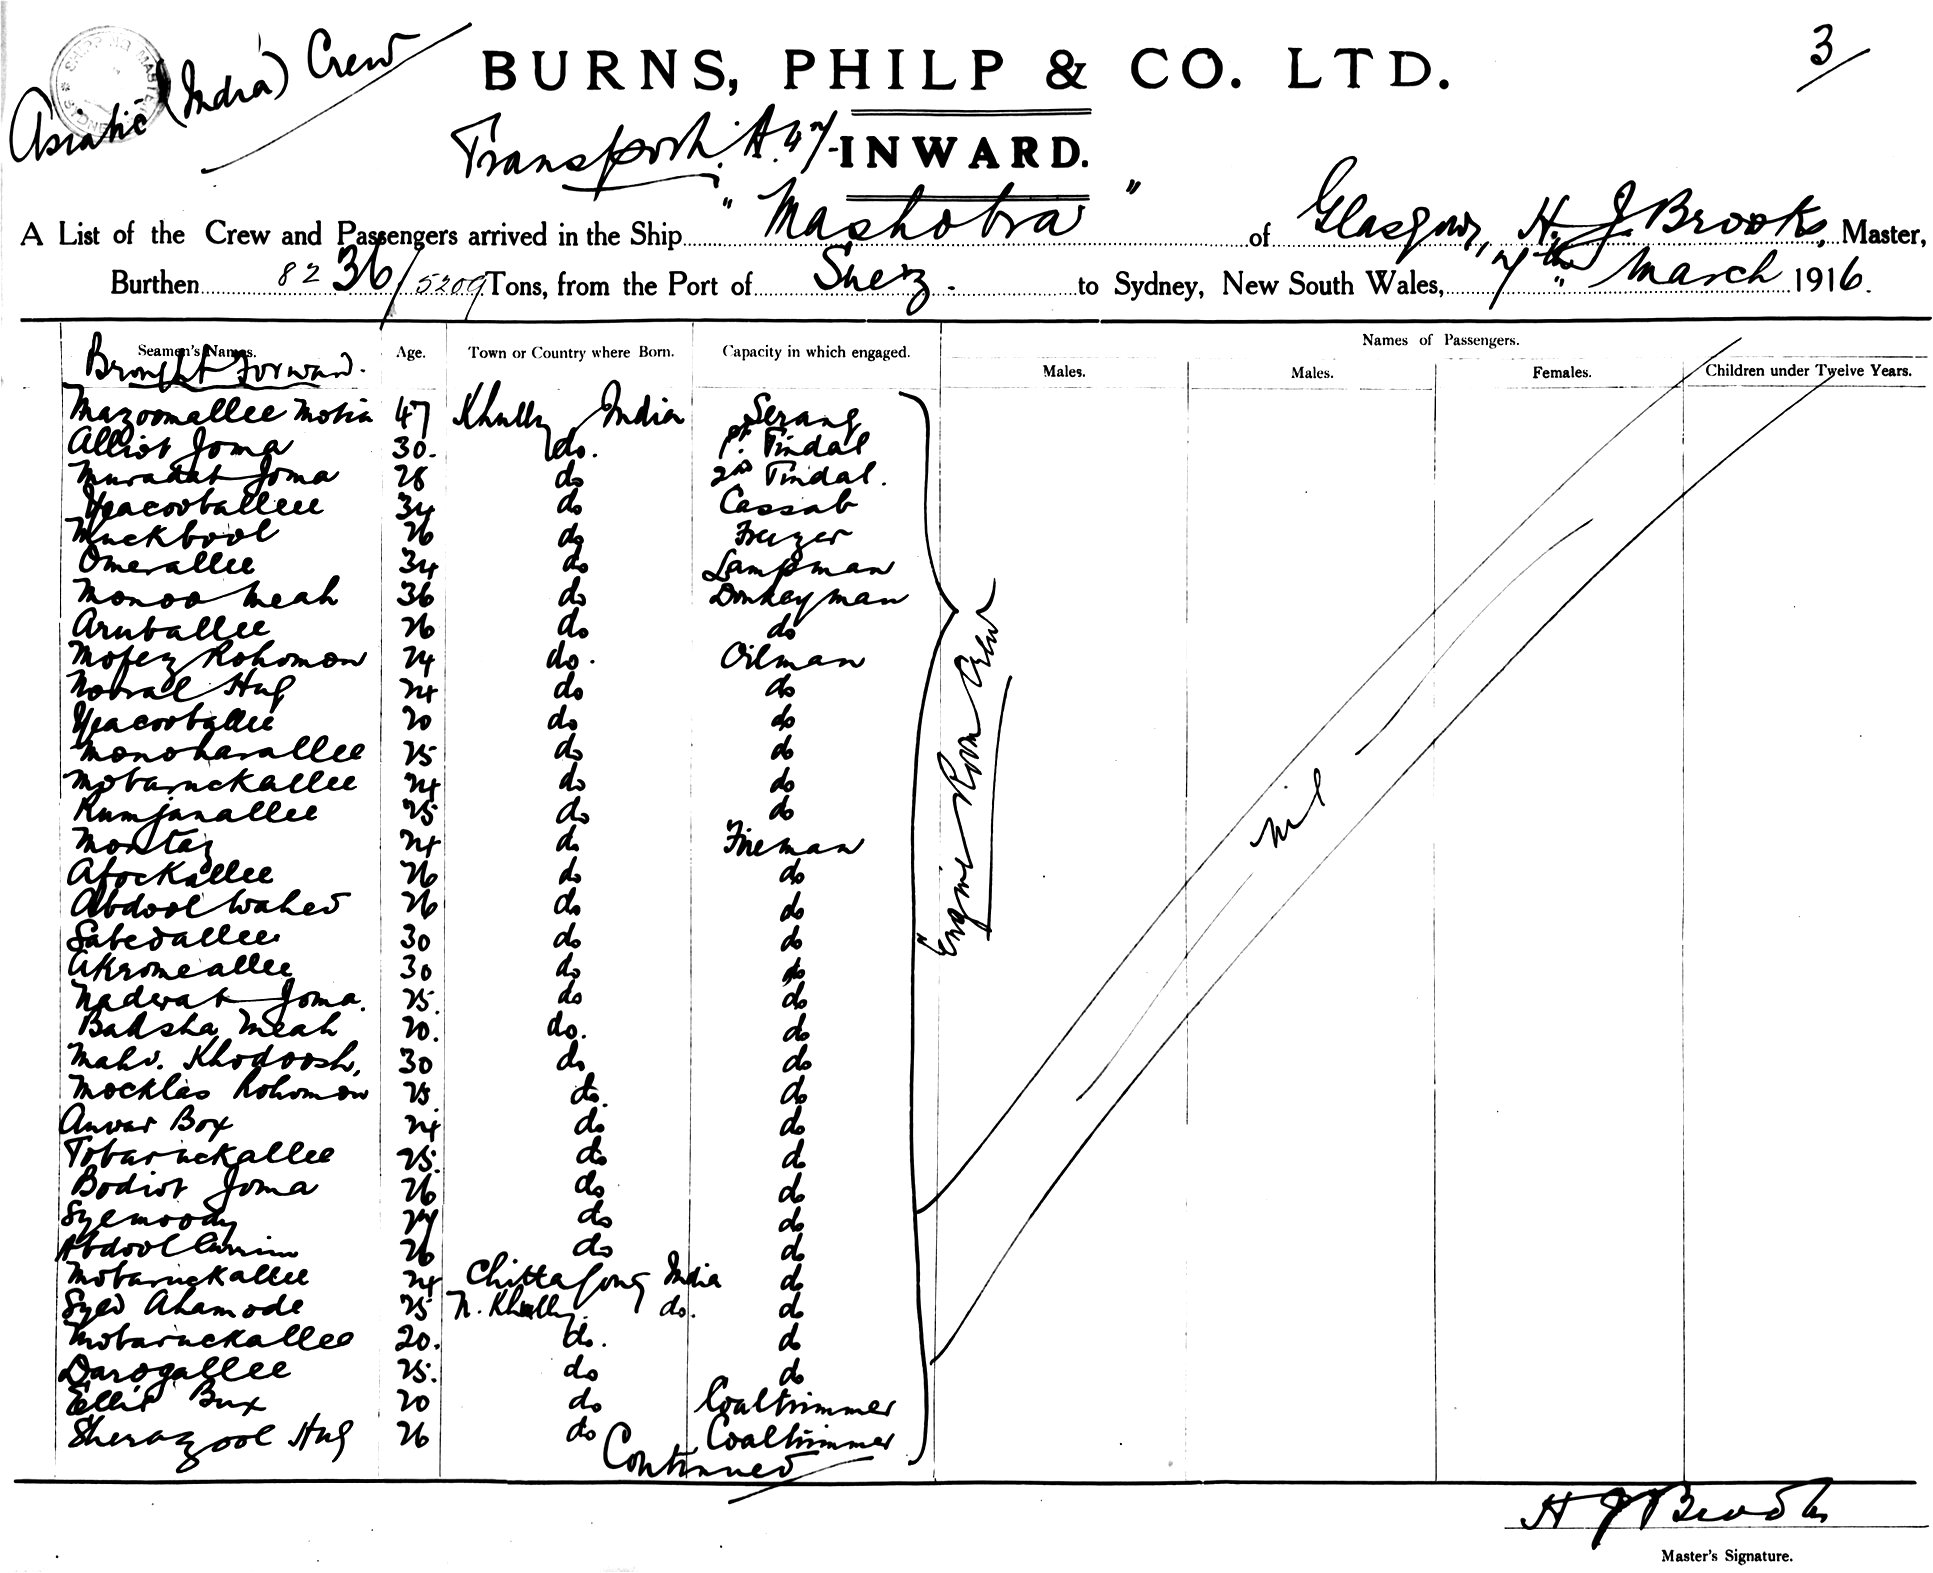 Asiatic (India) Crew
3
BURNS, PHILP & CO. LTD.
Transport. A.47 INWARD.
A List of the Crew and Passengers arrived in the Ship "Mashobra" of Glasgow, H. J. Brooks, Master,
Burthen 8236/5209 Tons, from the Port of Suez. to Sydney, New South Wales, 7th March 1916.
Seamen's Names. Age. Town or Country where Born. Capacity in which engaged. Names of Passengers.
Males. Males. Females. Children under Twelve Years.
Brought Forward.
Mazoomallee Motia 47 Khully India Serang
Alliot Joma 30. do. 1st Tindal
Muradat Joma 28 do 2nd Tindal.
Yeacooballee 34 do Cassab
Muckbool 26 do
Omerallee 34 do Lampman
Monoo Meah 36 do Donkeyman
Aruballee 26 do do
Mofez Rohomon 24 do. Oilman
Nooral Huq 24 do do
Yeacooballee 20 do do
Monoharallee 25 do do
Mobaruckallee 24 do do
Rumjanallee 25 do do
Montaz 24 do Fireman
Afockallee 26 do do
Abdool Wahed 26 do do
Sabedallee 30 do do
Akromeallee 30 do do
Naderat Joma. 25. do do
Badsha Meah 20. do. do
Mahd. Khodoosh, 30 do do
Mocklas Rohomon 25 do. do
Anwar Box 24 do do
Tobaruckallee 25. do do
Bodiot Joma 26 do do
Syemoody 27 do do
Abdool Currim 26 do do
Mobaruckallee 24 Chittagong India do
Syed Ahamode 25 N. Khully. do. do
Mobaruckallee 20. do. do
Darogallee 25. do do
Ellis Bux 20 do Coaltrimmer
Sherazool Huq 26 do Coaltrimmer
Engine Room Crew
Nil
Continued
H J Brooks
Master's Signature.